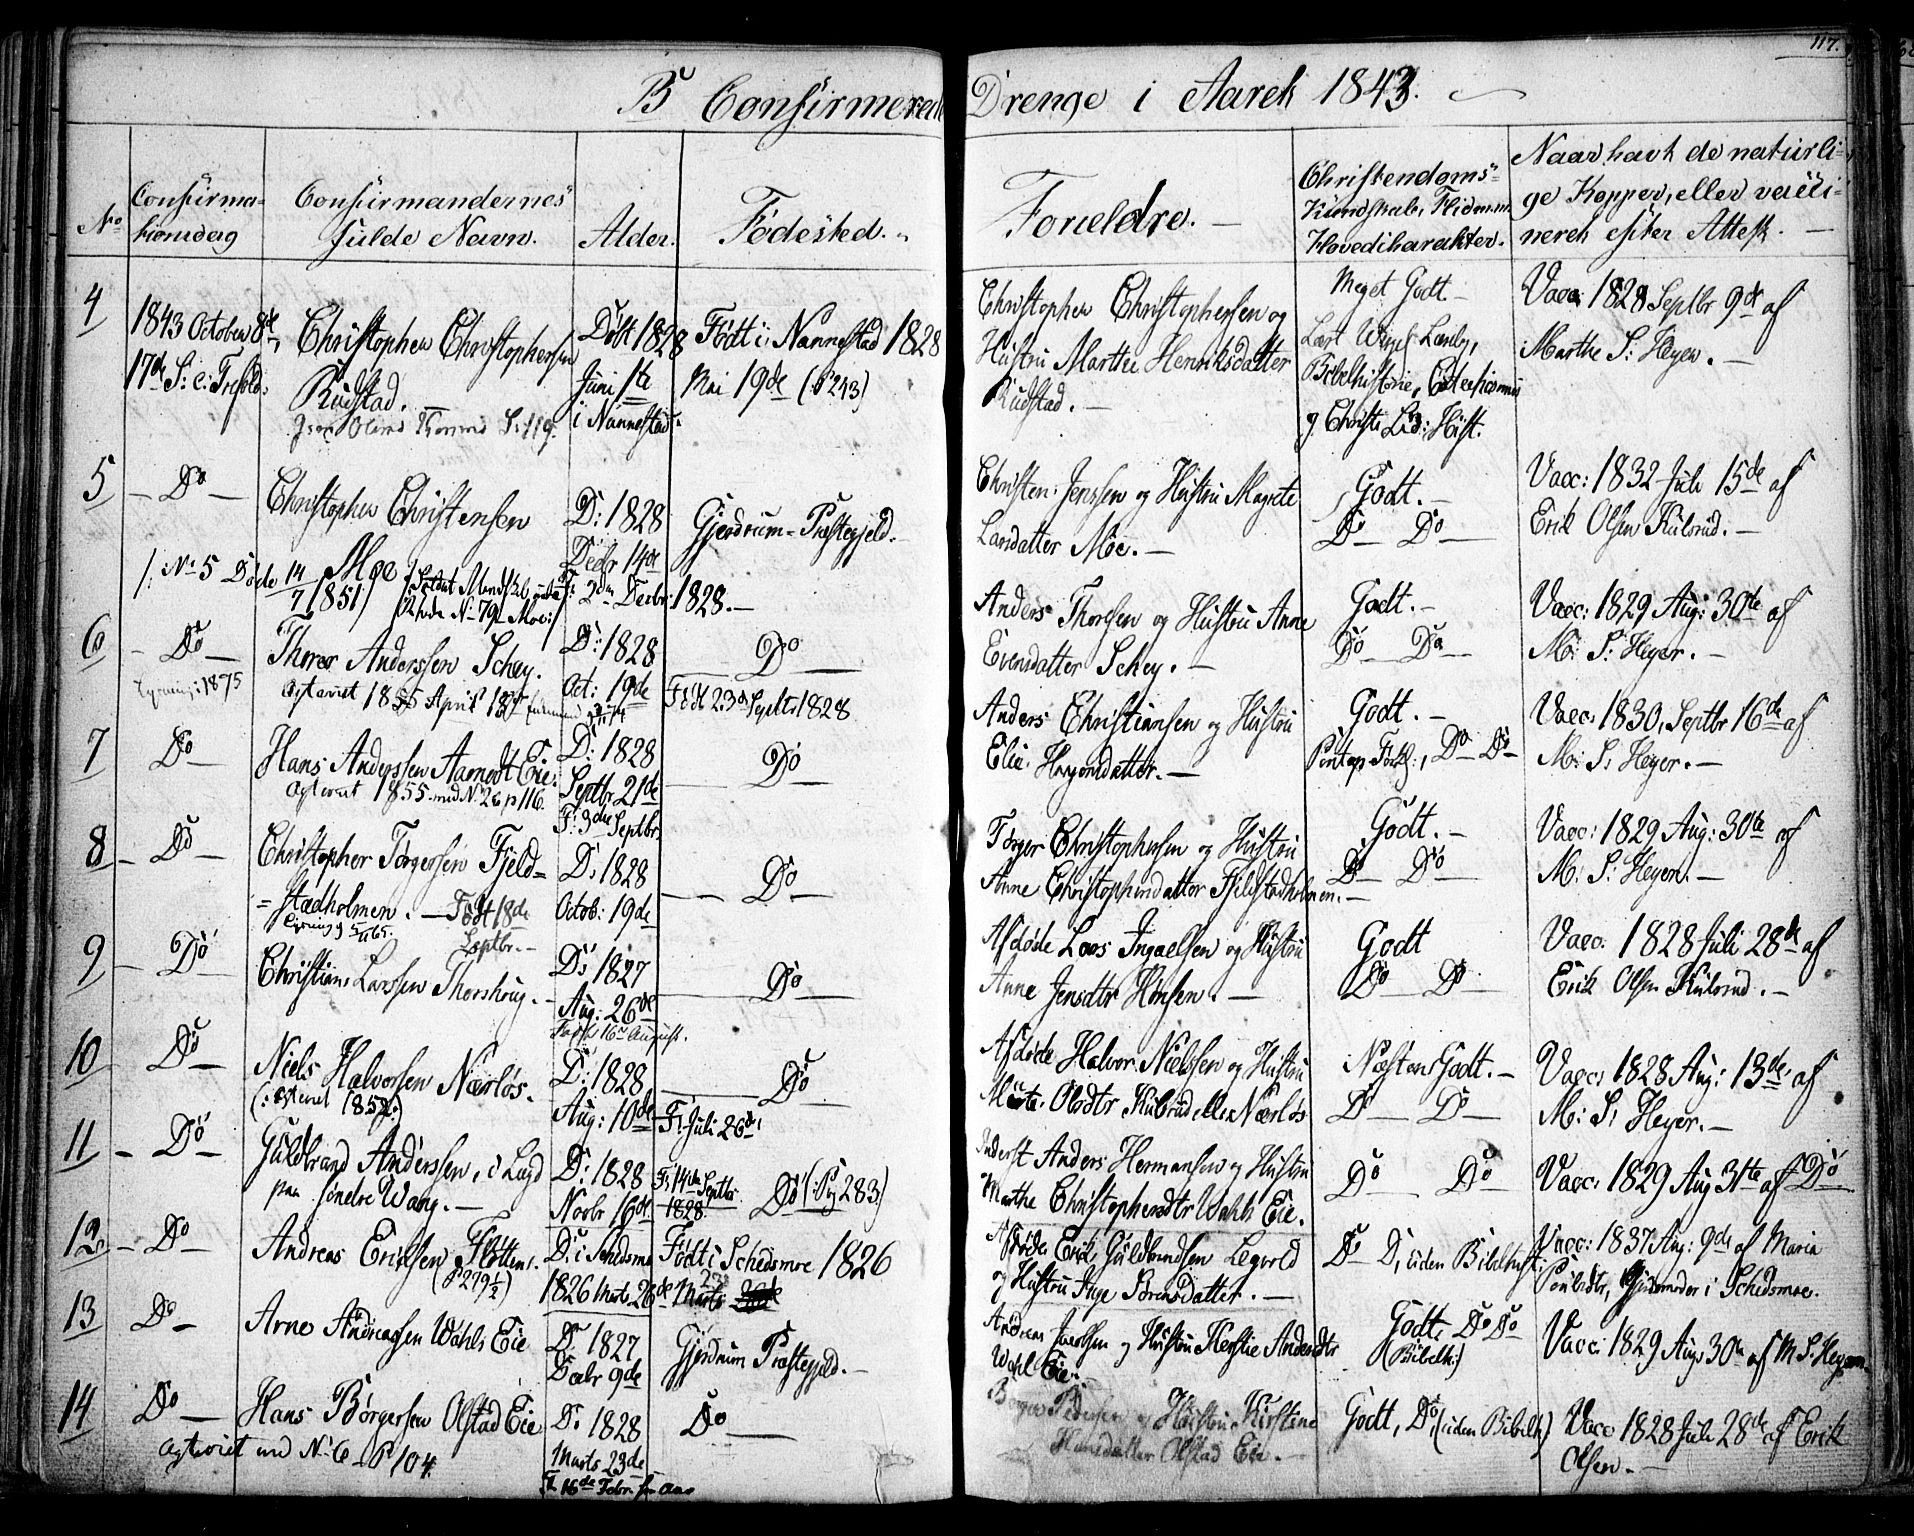 117.
B Confirmerede Drenge i Aaret 1843.
No
Confirma-
tionsdag
Confirmandernes
fulde Navn.
Alder.
Fødested.
Forældre.
Christendoms-
Kundskab, Flid m.m.
Hovedcharakter.
Naar havt de naturli-
ge Kopper, eller vacci-
neret efter Attest.
4
1843 October 8de,
17de S: e: Trefold:
Christopher Christophersen
Rudstad.
S: 119.
Døbt 1828
Juni 1te
i Nannestad.
Født i Nannestad 1828
Mai 19de (P 243)
Christopher Christophersen og
Hustru Marthe Henriksdatter
Rudstad.
Meget Godt
Bibelhistorie,
g. Christi Lid: Hist.
Vacc: 1828 Septbr 9de af
Marthe S: Heyer.
5
Do
Christopher Christensen
Moe
/: No 5 Døde 14/7 1851
No 79 Moe:/
D: 1828
Decbr 14de
F: 2den Decbr: 1828.
Gjerdrum Præstegjeld.
Christen Jenssen og Hustru Magrete
Larsdatter Moe.
Godt.
Do Do
Vacc: 1832 Juli 15de af
Erik Olsen Kulsrud.
6
Do
1875
Thorer Anderssen Schey.
1855 April
D: 1828
Oct: 19de
Do
Født 23de Septbr 1828
Anders Thorsen og Hustru Anne
Evensdatter Schey.
Godt.
Do Do
Vacc: 1829 Aug: 30te af
M: S: Heyer.
7
Do
Hans Anderssen Aamodt Eie.
1855 med No 26 p 116.
D: 1828
Septbr 21de
F: 3die Septbr
Do
Anders Christiansen og Hustru
Elie Haagensdatter.
Godt.
Do Do
Vacc: 1830, Septbr 16de af
M: S: Heyer.
8
Do
Christopher Tørgersen Fjeld-
stadholmen. Født 18de
Septbr.
D: 1828
Octob: 19de
Do
Tørger Christophersen og Hustru
Anne Christophersdatter Fjeldstadholmen.
Godt.
Do Do
Vacc: 1829 Aug: 30te af
M: S: Heyer.
9
Do
Christian Larssen Thorshaug.
D: 1827
Aug: 26de
Født 16de August.
Do
Afdøde Lars Ingaelsen og Hustru
Anne Jensdtr Hønsen.
Godt
Do Do
Vacc: 1828 Juli 28de af
Erik Olsen Kulsrud.
10
Do
Niels Halvorsen Nærløs.
D: 1828
Aug: 10de
F: Juli 26de
Do
Afdøde Halvor Nielsen og Hustru
Marte Olsdtr Kulsrud eller Nærløs
Næsten Godt.
Do Do
Vacc: 1828 Aug: 13de af
M: S: Heyer.
11
Do
Guldbrand Anderssen, i Lægd
paa søndre Wang.
D: 1828
Novbr 16de
F: 14de Septbr
1828.
Do (: Pg 283:)
Anders Hermansen og Hustru
Marthe Christophersdtr Wahls Eie.
Do Do
Vacc: 1829 Aug 31te af Do
12
Do
Andreas Eriksen Flotten.
(P 279½)
D: i Schedsmo
1826 Marts 26de
Født i Schedsmoe 1826
Marts 23
Afdøde Erik Guldbrandsen Legvold
og Hustru Inge Brensdatter.
Do D, uden Bibelhist:
Vacc: 1837 Aug: 9de af Maria
Poulsdtr, Gjordemoder i Schedsmoe.
13
Do
Arne Andreassen Wahls Eie
D: 1827
Decbr 9de
Gjerdrum Præstegjeld.
Andreas Jacobsen og Hustru Kerstie Andersdtr
Wahl Eie.
Godt, Do Do
(Bibelh:)
Vacc: 1829 Aug: 30te af M S: Heyer.
14
Do
Hans Børgersen Olstad Eie
med No 6 P 104.
D: 1828
Marts 23de
F: 16de Febr
Do
Børger Pedersen og Hustru Kirstine
Hansdatter Olstad Eie.
Godt, Do (uden Bibelh:)
Vacc 1828 Juli 28de af Erik
Olsen.